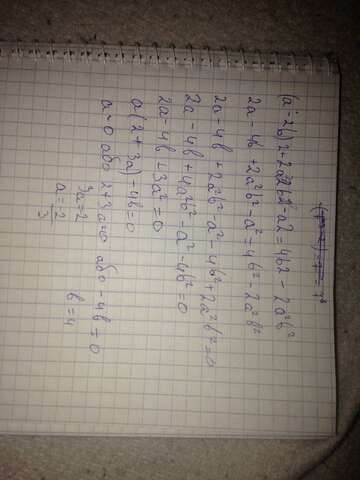 (a-2b)2+2a2b2-a2=4b2-2a²b²
2a-4b+2a²b²-a²=4b²-2a²b²
2a-4b+2a²b²-a²-4b²+2a²b²=0
2a-4b+4a²b²-a²-4b²=0
2a-4b+3a²=0
a(2+3a)-4b=0
a=0 або 2+3a=0 або -4b=0
3a=2 b=4
a=-2/3